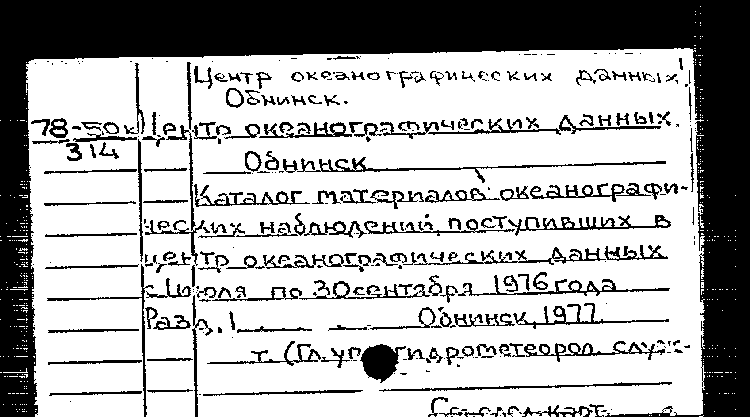 Центр океанографических данных.
Обнинск.
78-50к Центр океанографических данных.
314
Обнинск
Каталог материалов океанографи-
ческих наблюдений, поступивших в
центр океанографических данных
с 1 июля по 30 сентября 1976 года
Разд. 1 Обнинск, 1977
т. (Гл. упр. гидрометеорол. служ-
См. след. карт.